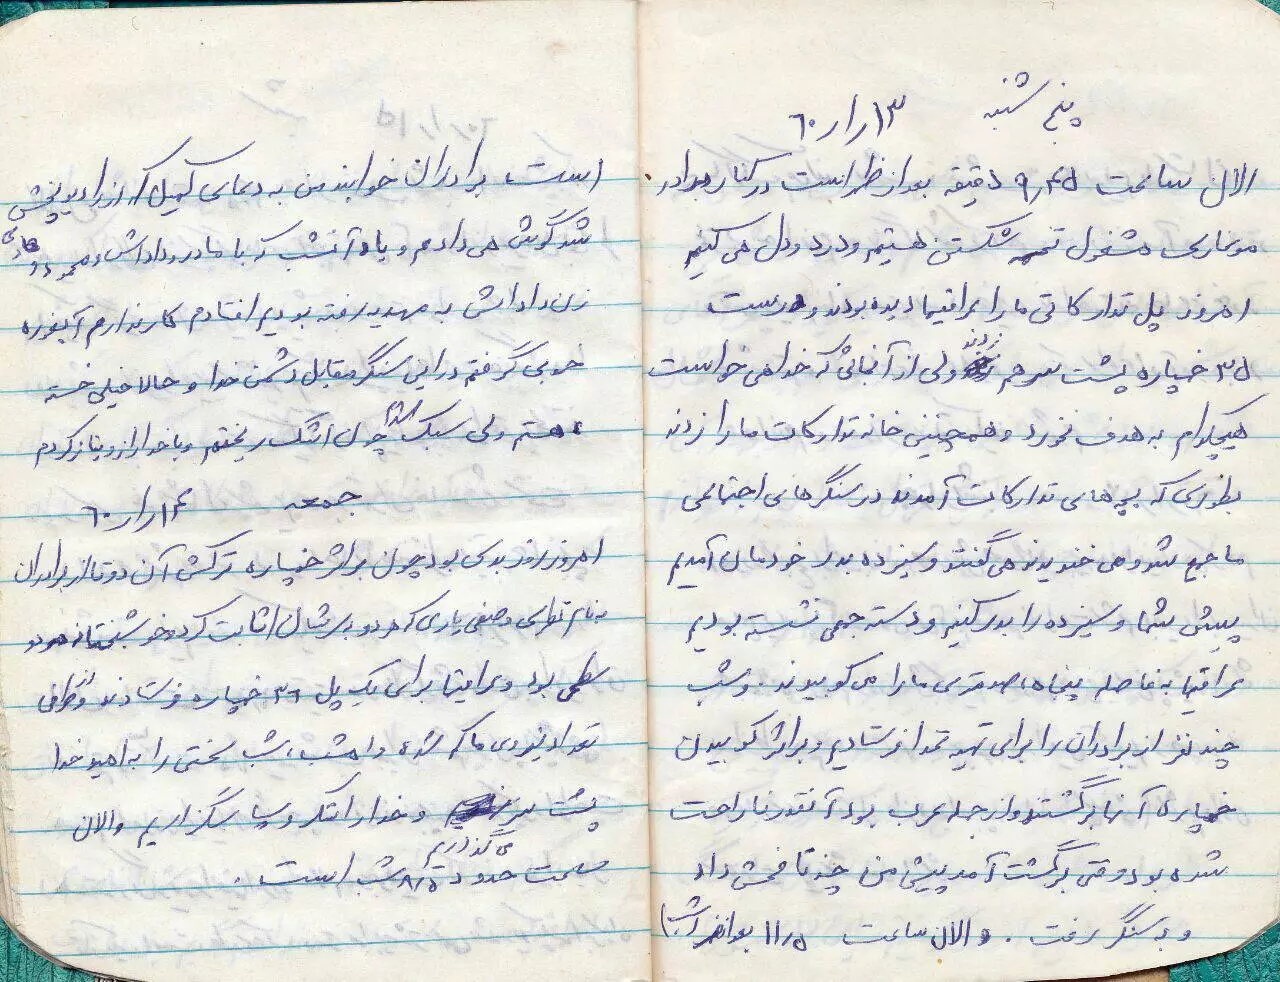 پنج شنبه ۱۳ر۱ر۶۰
الان ساعت ۹٫۴۵ دقیقه بعد از ظهر است در کنار برادر
موسی مشغول تخمه شکستن هستیم و درد و دل می کنیم
امروز پل تدارکاتی ما را عراقیها دیده بودند و درست
۳۵ خمپاره پشت سر هم زدند ولی از آنجائی که خدا می خواست
هیچکدام به هدف نخورد و همچنین خانه تدارکات ما را زدند
بطوری که بچه های تدارکات آمدند در سنگرهای اجتماعی
ما جمع شد و می خندیدند می گفتند سیزده بدر خودمان آمدیم
پیش شما و سیزده را بدر کنیم و دسته جمعی نشسته بودیم
عراقیها به فاصله پنجاه، صد متری ما را می کوبیدند. و شب
چند نفر از برادران را برای تهیه غذا فرستادیم و بر اثر کوبیدن
خمپاره ی آنها برگشتند و از جمله عرب بود آنقدر ناراحت
شده بود وقتی برگشت آمد پیش من چند تا فحش داد
و به سنگر رفت. و الان ساعت ۱۱٫۵ بعد از ظهر (شب)
است برادران خوابیدند من به دعای کمیل که از رادیو پخش
شد گوش می دادم و یاد آنشب که با مادر و داداش و محمد و
زن داداش به مهدیه رفته بودیم افتادم کار ندارم آبغوره
خوبی گرفتم در این سنگر مقابل دشمن خدا و حالا خیلی خسته
هستم ولی سبک شدم چون اشک ریختم و با خدا راز و نیاز کردم
جمعه ۱۴ر۱ر۶۰
امروز روز بدی بود چون بر اثر خمپاره ترکش آن دو تا از برادران
به نام تهرانی و صفی یاری که هر دو به سرشان اثابت کرد خوشبختانه هر دو
سطحی بود و عراقیها برای یک پل ۳۶ خمپاره فرستادند و از طرفی
تعداد نیروی ما کم شده و امشب، شب سختی را به امید خدا
پشت سر می گذاریم و خدا را شکر و سپاسگزاریم و الان
ساعت حدود ۸٫۵ شب است.